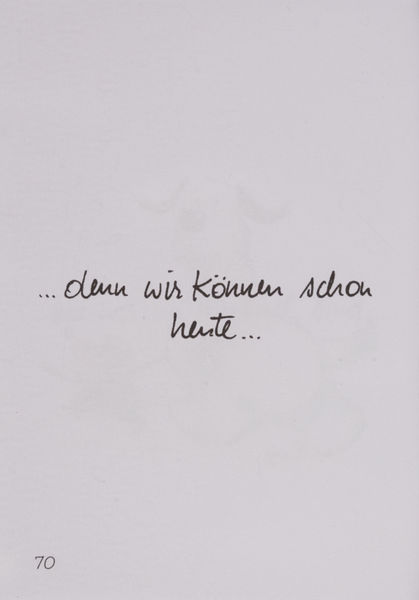 ...denn wir können schon
heute...
70